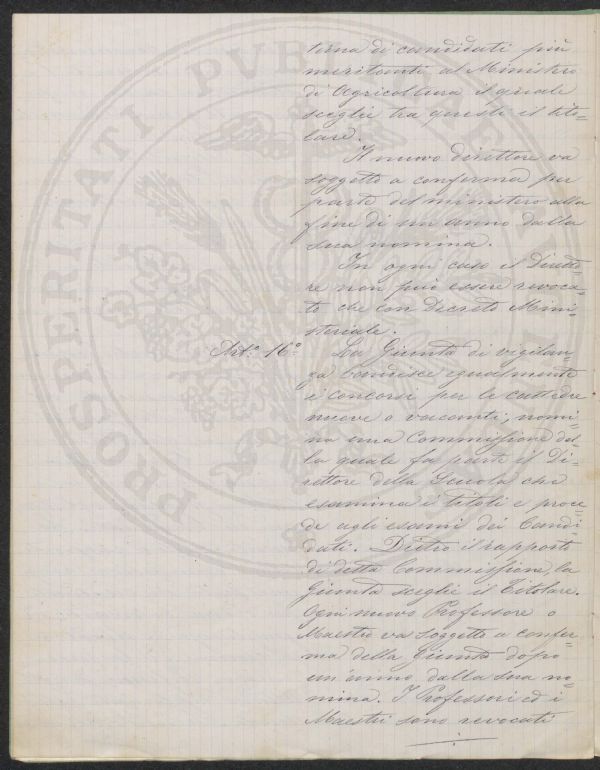 terna di candidati più
meritanti al Ministero
di Agricoltura il quale
sceglie tra questi il tito=
lare.
Il nuovo direttore va
soggetto a conferma per
parte del ministero alla
fine di un anno dalla
sua nomina.
In ogni caso il Diretto=
re non può essere revoca=
to che con Decreto Mini=
steriale.
Art.° 16° La Giunta di vigilan=
za bandisce egualmente
i concorsi per le cattedre
nuove o vacanti; nomi=
na una Commissione del=
la quale fa parte il Di=
rettore della Scuola che
esamina i titoli e proce=
de agli esami dei Candi=
dati. Dietro il rapporto
di detta Commissione, la
Giunta sceglie il Titolare.
Ogni nuovo Professore o
Maestro va soggetto a confer=
ma della Giunta dopo
un'anno dalla sua no=
mina. I Professori ed i
Maestri sono revocati
PROSPERITATI PUBLICAE